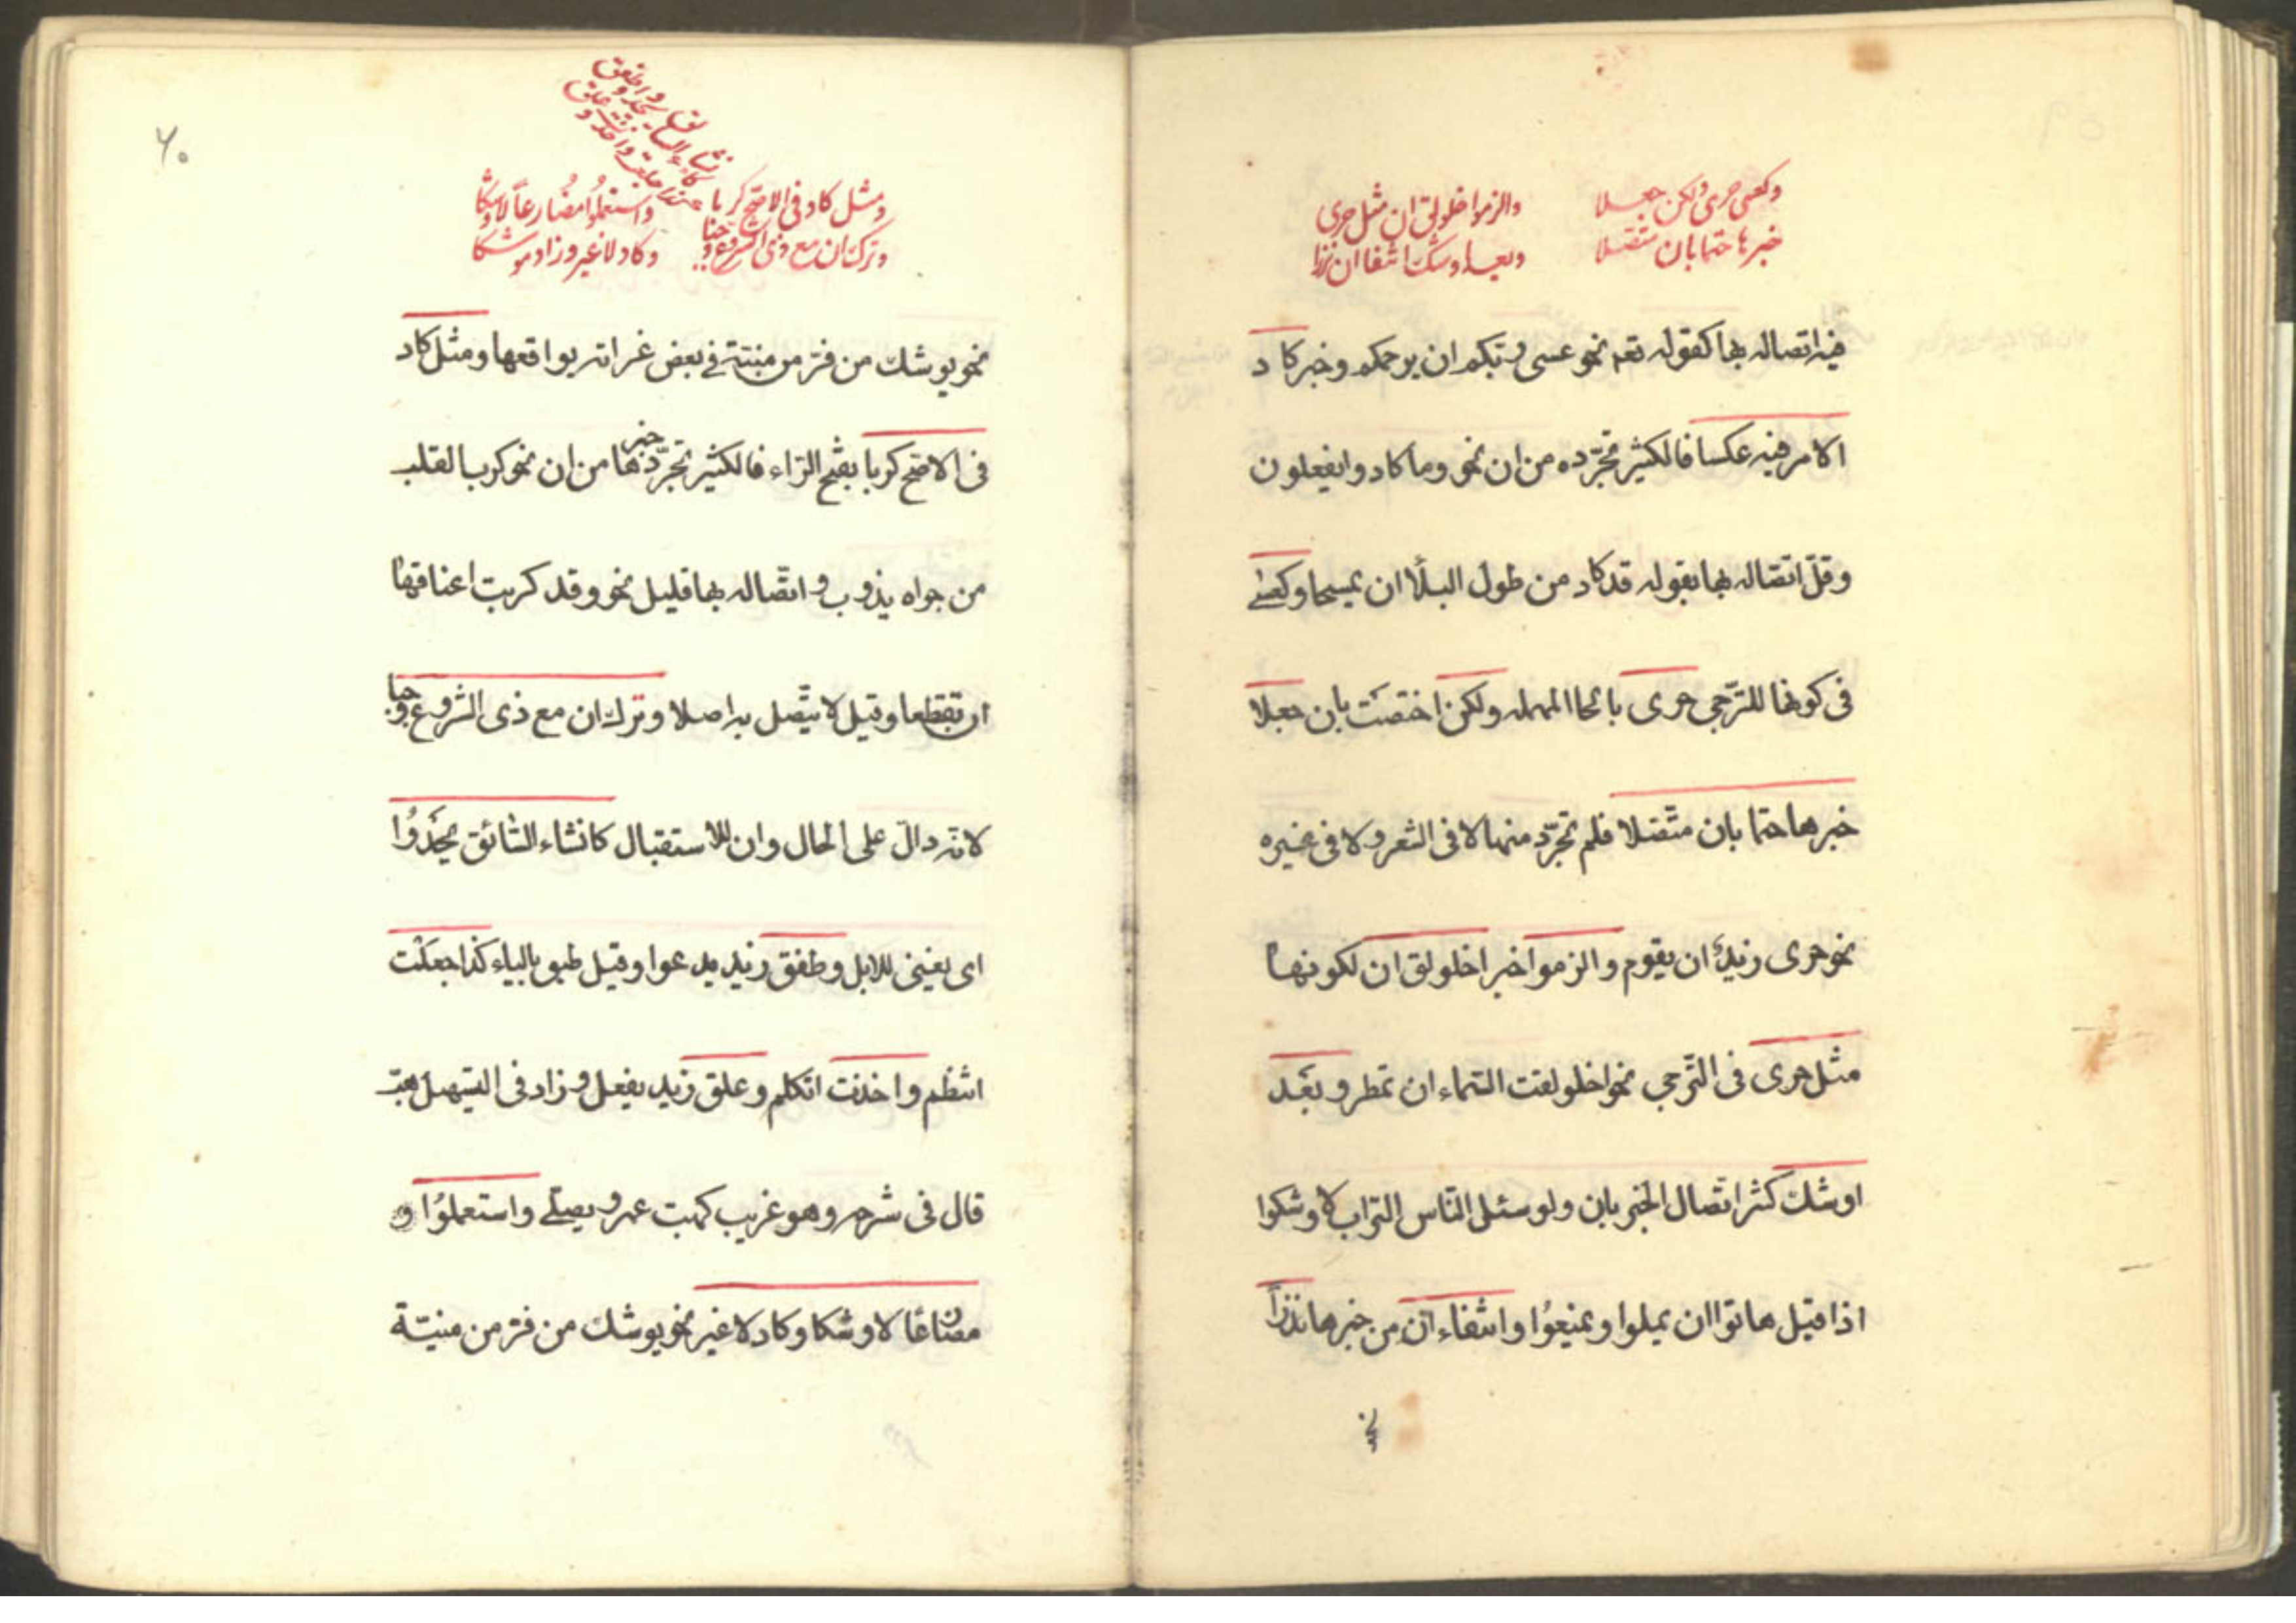 وكعسى حرى ولكن جعلا
خبرها حتما بان متصلا
والزموا اخلولق ان مثل حرى
وبعد اوشك انتفا ان نزرا
فيه اتصاله بها كقوله تعم نحو عسى ربكم ان يرحمكم وخبر كاد
الامر فيه عكسا فالكثير تجرّده من ان نحو وما كادوا يفعلون
وقلّ اتصاله بها بقوله قد كاد من طول البلأ ان يمسحا وكعسى
فى كونها للترّجى حرى بالحا المهمله ولكن اختصّت بان جعلا
خبرها حتما بان متّصلا فلم تجرّد منها لا فى الشعر ولا فى غيره
نحو حرى زيدٌ ان يقوم والزموا خبر اخلولق ان لكونها
مثل حرى فى الترّجى نحو اخلولقت السّماء ان تمطر وبعد
اوشك كثر اتصال الخبر بان ولو سئل النّاس التراب لاوشكوا
اذا قيل هاتوا ان يملوا ويمنعوُا وانتفاء ان من خبرها نزراً
نحو
٦٠
ومثل كاد فى الاصّح كربا
وترك ان مع ذى الشروع وجبا
كانشاء السائق يحدو وطفق
كذا جعلت واخذت وعلق
واستعملوُا مضُارعاً لاوشكا
وكاد لا غير وزاد موشكا
نحو يوشك من فرّ من منيّته فى بعض غراته يوافقها ومثل كاد
فى الاصّح كربا بفتح الرّاء فالكثير تجرّد خبرها من ان نحو كرب القلب
من جواه يذوب واتصّاله بها قليل نحو وقد كربت اعناقها
ان تقطعا وقيل لا يتّصل به اصلا وترك ان مع ذى الشروع وجبا
لانّه دالّ على الحال وان للاستقبال كانشاء السّائق يحدُوا
اى يغنى للابل وطفق زيد يدعوا وقيل طبق بالباء كذا جعلت
انظم واخذت اتكلم وعلق زيد يفعل وزاد فى التسهيل هبّ
قال فى شرحه وهو غريب كهبت عمرو يصلى واستعملوُا
مضارعًا لاوشكا وكاد لا غير نحو يوشك من فرّ من منيّته